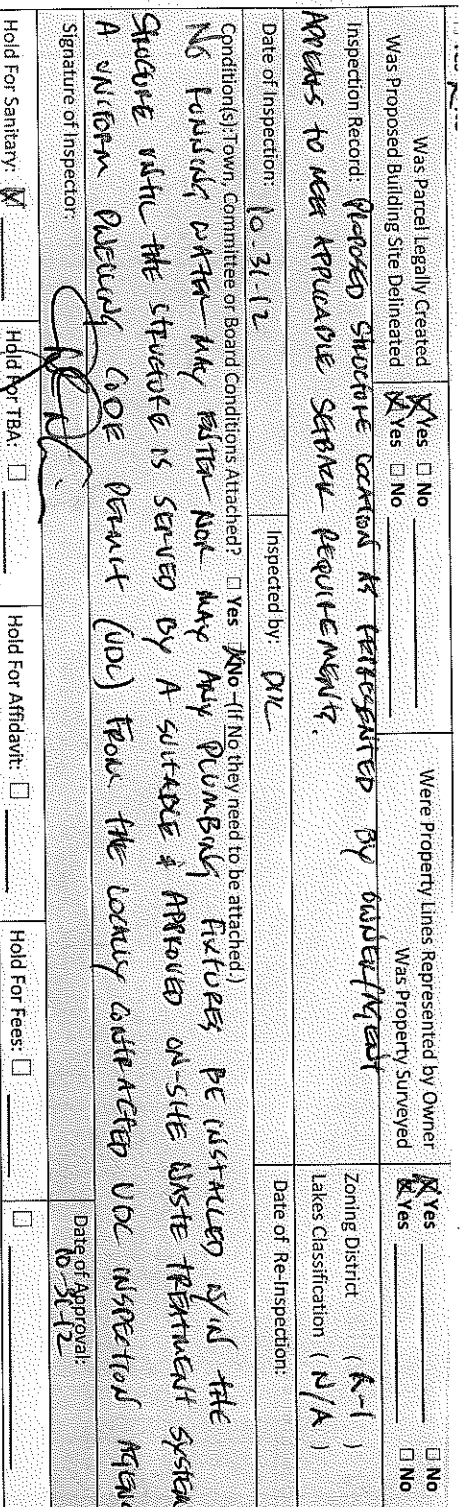 Was Parcel Legally Created ☒ Yes ☐ No
Was Proposed Building Site Delineated ☒ Yes ☐ No
Were Property Lines Represented by Owner ☒ Yes ☐ No
Was Property Surveyed ☒ Yes ☐ No
Inspection Record: PROPOSED STRUCTURE LOCATION AS REPRESENTED BY OWNER/AGENT
APPEARS TO MEET APPLICABLE SETBACK REQUIREMENTS.
Zoning District ( R-1 )
Lakes Classification ( N/A )
Date of Inspection: 10-31-12
Inspected by:
Date of Re-Inspection:
Condition(s): Town, Committee or Board Conditions Attached? ☐ Yes ☒ No – (If No they need to be attached.)
NO RUNNING WATER MAY ENTER NOR MAY ANY PLUMBING FIXTURES BE INSTALLED W/IN THE
STRUCTURE UNTIL THE STRUCTURE IS SERVED BY A SUITABLE & APPROVED ON-SITE WASTE TREATMENT SYSTEM
A UNIFORM DWELLING CODE PERMIT (UDC) FROM THE LOCALLY CONTRACTED UDC INSPECTION AGENCY
Signature of Inspector:
Date of Approval:
10-31-12
Hold For Sanitary: ☒ Hold For TBA: ☐ Hold For Affidavit: ☐ Hold For Fees: ☐ ☐